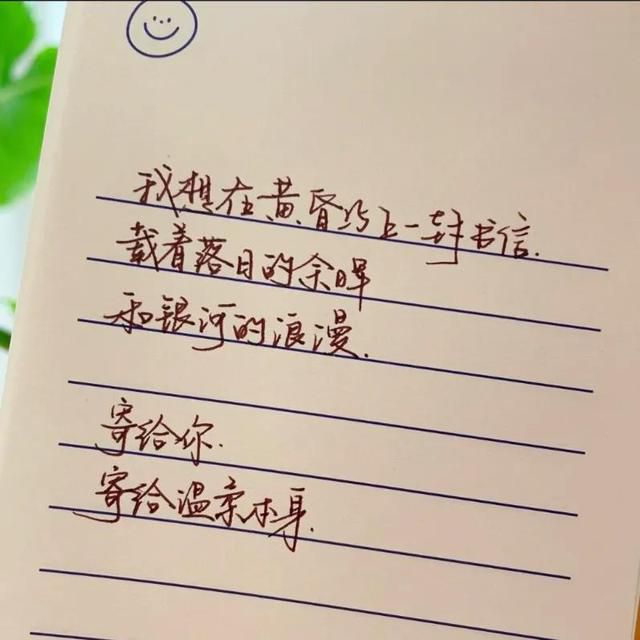 我想在黄昏巧上一封书信.
载着落日的余晖
和银河的浪漫.
寄给你.
寄给温柔本身.